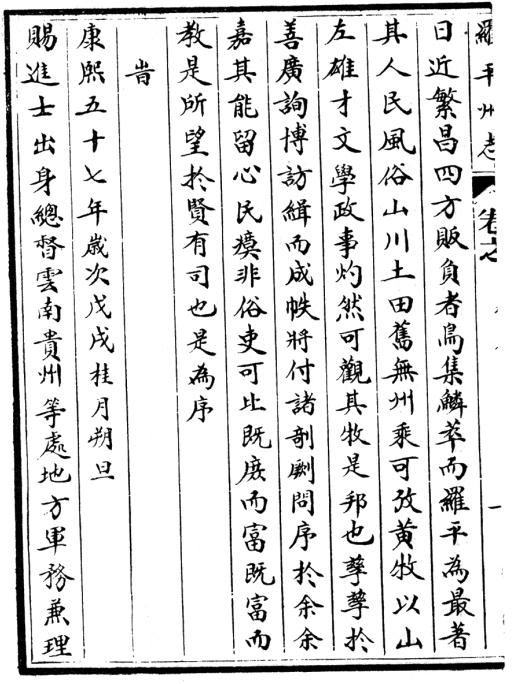 羅平州志 卷之
日近繁昌四方販負者鳥集鱗萃而羅平為最著
其人民風俗山川土田舊無州乘可攷黃牧以山
左雄才文學政事灼然可觀其牧是邦也孳孳於
善廣詢博訪緝而成帙將付諸剞劂問序於余余
嘉其能留心民瘼非俗吏可比既庶而富既富而
教是所望於賢有司也是為序
旹
康熙五十七年歲次戊戌桂月朔旦
賜進士出身總督雲南貴州等處地方軍務兼理